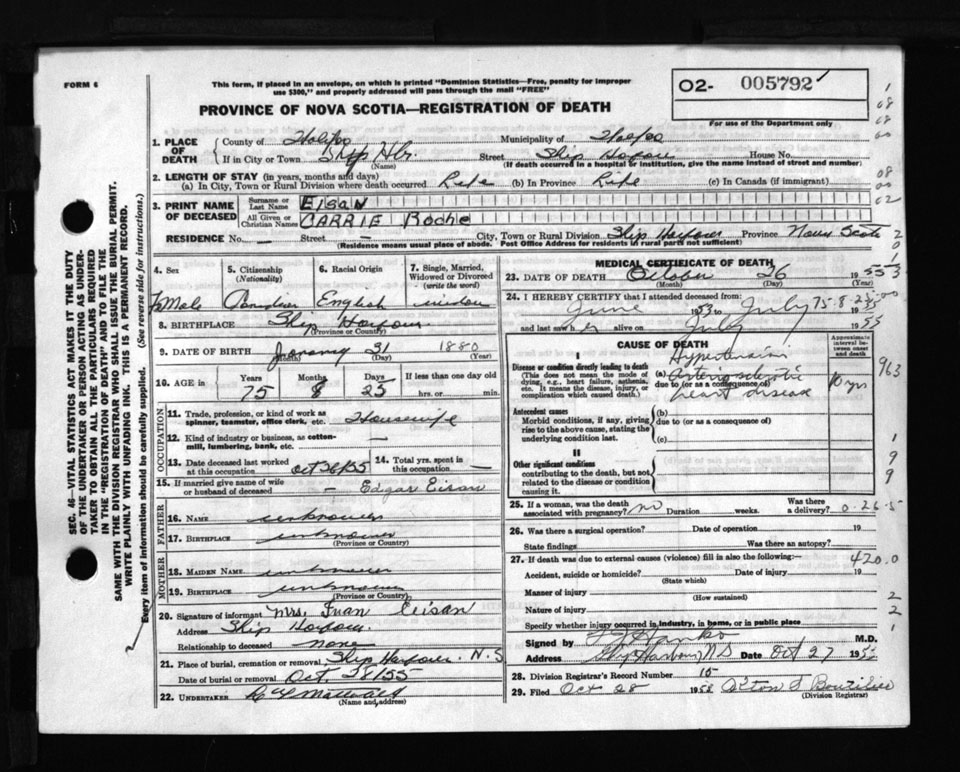 FORM 6
This form, if placed in an envelope, on which is printed "Dominion Statistics—Free, penalty for improper
use $300," and properly addressed will pass through the mail "FREE"
PROVINCE OF NOVA SCOTIA—REGISTRATION OF DEATH
O2- 005792
For use of the Department only
1. PLACE OF DEATH
County of Halifax Municipality of Halifax
If in City or Town Ship Hbr. Street Ship Harbour House No.
(Name) (If death occurred in a hospital or institution, give the name instead of street and number)
2. LENGTH OF STAY (in years, months and days)
(a) In City, Town or Rural Division where death occurred Life (b) In Province Life (c) In Canada (if immigrant)
3. PRINT NAME OF DECEASED
Surname or Last Name EISAN
All Given or Christian Names CARRIE Roche
RESIDENCE No. — Street — City, Town or Rural Division Ship Harbour Province Nova Scotia
(Residence means usual place of abode. Post Office Address for residents in rural parts not sufficient)
4. Sex
5. Citizenship (Nationality)
6. Racial Origin
7. Single, Married, Widowed or Divorced (write the word)
FeMale Canadian English widow
8. BIRTHPLACE Ship Harbour
(Province or Country)
9. DATE OF BIRTH January 31 1880
(Month) (Day) (Year)
10. AGE in Years Months Days If less than one day old
75 8 25 hrs. or min.
OCCUPATION
11. Trade, profession, or kind of work as
spinner, teamster, office clerk, etc. Housewife
12. Kind of industry or business, as cotton-
mill, lumbering, bank, etc. —
13. Date deceased last worked
at this occupation Oct 26/55
14. Total yrs. spent in
this occupation —
15. If married give name of wife
or husband of deceased — Edgar Eisan
FATHER
16. NAME unknown
17. BIRTHPLACE unknown
(Province or Country)
MOTHER
18. MAIDEN NAME unknown
19. BIRTHPLACE unknown
(Province or Country)
20. Signature of informant Mrs. Ivan Eisan
Address Ship Harbour
Relationship to deceased none
21. Place of burial, cremation or removal Ship Harbour. N.S
Date of burial or removal Oct. 28/55
22. UNDERTAKER
(Name and address)
MEDICAL CERTIFICATE OF DEATH
23. DATE OF DEATH October 26 1955
(Month) (Day)
24. I HEREBY CERTIFY that I attended deceased from:
June 1953 to July 1955
and last saw her alive on July 1955
CAUSE OF DEATH
Approximate interval between onset and death
I
Disease or condition directly leading to death
(This does not mean the mode of
dying, e.g., heart failure, asthenia,
etc. It means the disease, injury, or
complication which caused death.)
Hypertension
(a) Arteriosclerotic
due to (or as a consequence of)
heart disease
10 yrs
Antecedent causes
Morbid conditions, if any, giving
rise to the above cause, stating the
underlying condition last.
(b)
due to (or as a consequence of)
(c)
II
Other significant conditions
contributing to the death, but not
related to the disease or condition
causing it.
25. If a woman, was the death
associated with pregnancy? no Duration weeks. Was there a delivery?
26. Was there a surgical operation? Date of operation 19
State findings Was there an autopsy?
27. If death was due to external causes (violence) fill in also the following:—
Accident, suicide or homicide? Date of injury 19
(State which)
Manner of injury
(How sustained)
Nature of injury
Specify whether injury occurred in industry, in home, or in public place
Signed by M.D.
Address Ship Harbour N S Date Oct 27 1955
28. Division Registrar's Record Number 15
29. Filed Oct 28 1955
(Division Registrar)
75-8-25
963
1
9
9
0-26-5
420.0
2
2
1
SEC. 46—VITAL STATISTICS ACT MAKES IT THE DUTY
OF THE UNDERTAKER OR PERSON ACTING AS UNDER-
TAKER TO OBTAIN ALL THE PARTICULARS REQUIRED
IN THE "REGISTRATION OF DEATH" AND TO FILE THE
SAME WITH THE DIVISION REGISTRAR WHO SHALL ISSUE THE BURIAL PERMIT.
WRITE PLAINLY WITH UNFADING INK. THIS IS A PERMANENT RECORD.
Every item of information should be carefully supplied. (See reverse side for instructions.)